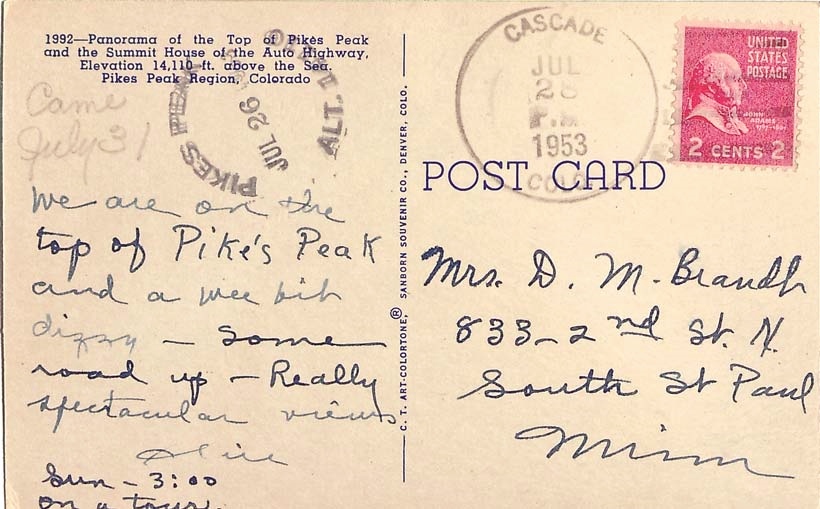 1992—Panorama of the Top of Pikes Peak
and the Summit House of the Auto Highway,
Elevation 14,110 ft. above the Sea.
Pikes Peak Region, Colorado
Came
July 31
PIKES PEAK
JUL 26
ALT.
We are on the
top of Pike's Peak
and a wee bit
dizzy – some
road up – Really
spectacular views
Sun – 3:00
on a tour.
C. T. ART-COLORTONE, ® SANBORN SOUVENIR CO., DENVER, COLO.
CASCADE
JUL
28
P.M
1953
COLO.
UNITED
STATES
POSTAGE
JOHN
ADAMS
2 CENTS 2
POST CARD
Mrs. D. M. Brandh
833-2nd St. N.
South St Paul
Minn